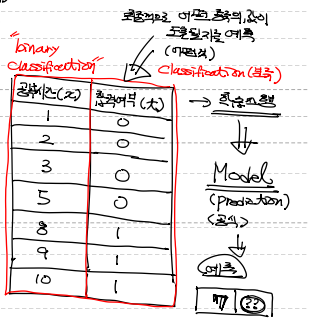 최종적으로 어떤 종류의 값이
도출될지를 예측
(이산적)
"binary
classification"
classification (분류)
공부시간(x) 합격여부(t)
1 0
2 0
3 0
5 0
8 1
9 1
10 1
→ 학습진행
Model
(prediction)
(공식)
예측
7 ??